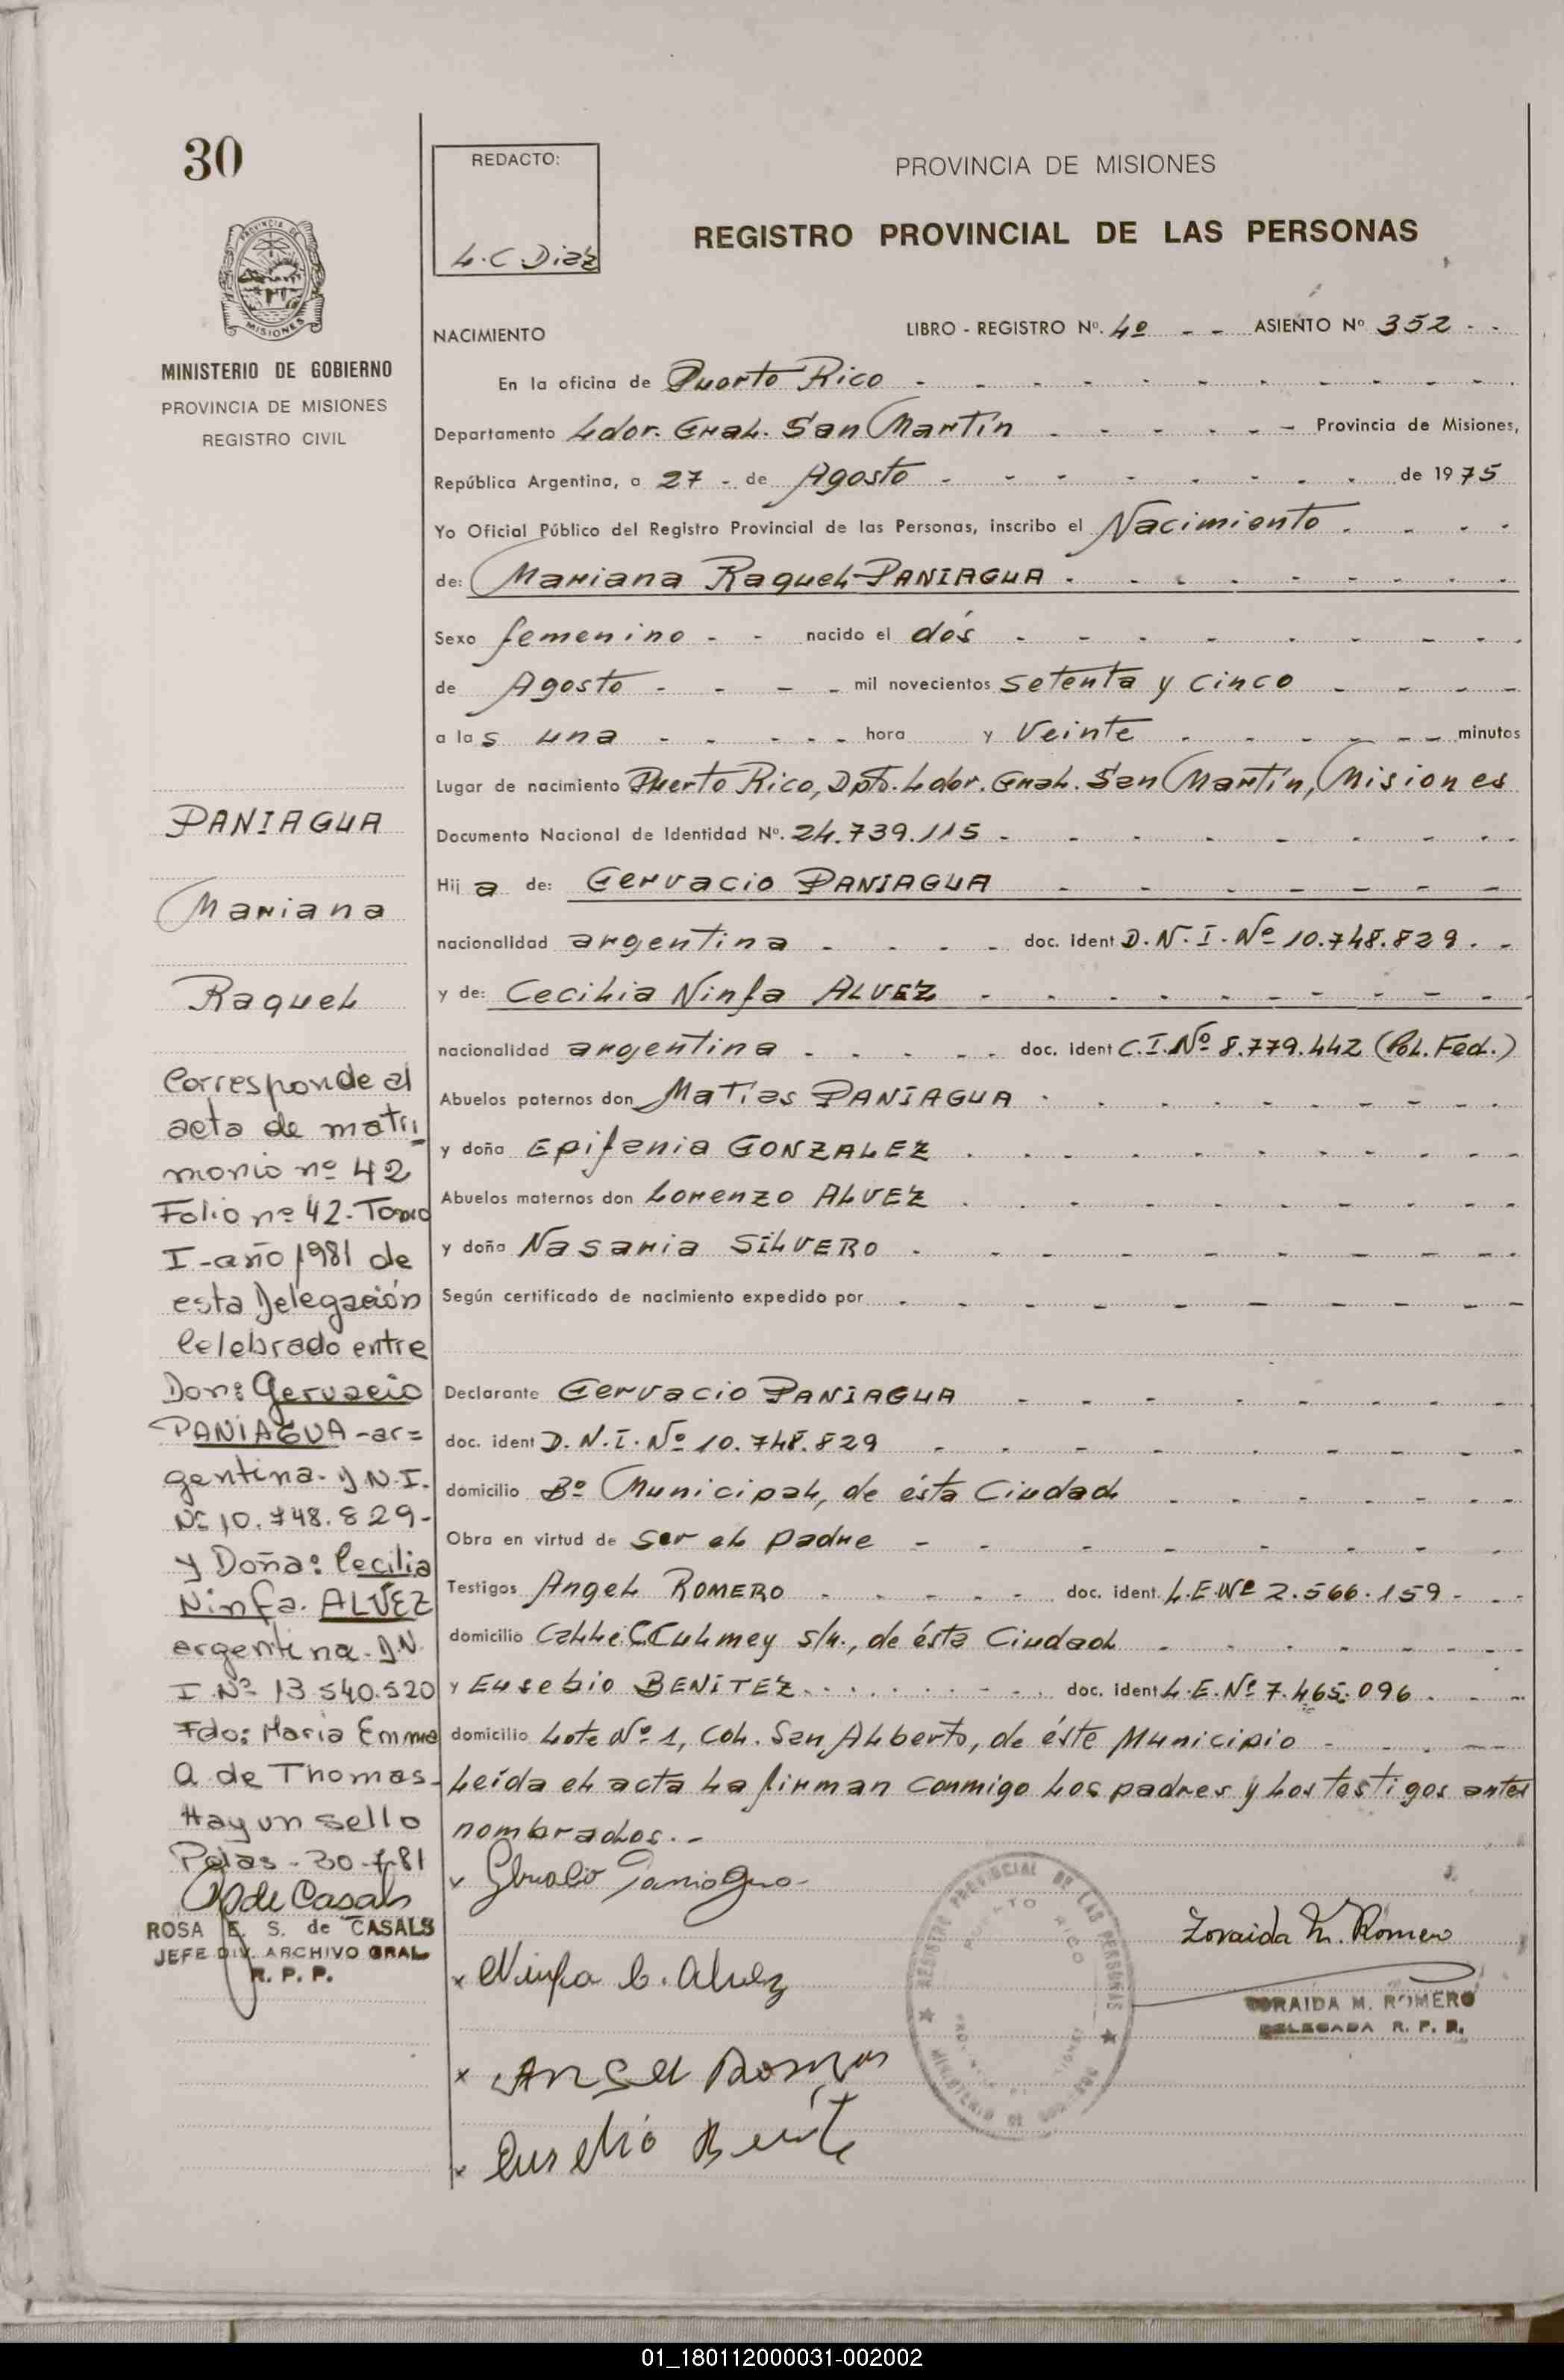 30
PROVINCIA DE MISIONES
MINISTERIO DE GOBIERNO
PROVINCIA DE MISIONES
REGISTRO CIVIL
PANIAGUA
Mariana
Raquel
Corresponde al
acta de matri
monio nº 42
Folio nº 42. Tomo
I - año 1981 de
esta Delegación
Celebrado entre
Don: Gervacio
PANIAGUA - ar=
gentina. D N. I.
Nº 10.748.829-
y Doña: Cecilia
Ninfa. ALVEZ
argentina. D.N.
I. Nº 13.540.520
Fdo: Maria Emma
A de Thomas-
Hay un sello
30
81
de Casals
ROSA E. S. de CASALS
JEFE DIV. ARCHIVO GRAL
R. P. P.
REDACTO:
L.C Diaz
PROVINCIA DE MISIONES
REGISTRO PROVINCIAL DE LAS PERSONAS
NACIMIENTO LIBRO - REGISTRO Nº. 4º - - ASIENTO Nº 352 - -
En la oficina de Puerto Rico
Departamento Ldor. Gral. San Martín Provincia de Misiones,
República Argentina, a 27 - de Agosto de 1975
Yo Oficial Público del Registro Provincial de las Personas, inscribo el Nacimiento
de: Mariana Raquel PANIAGUA
Sexo femenino - - nacido el dós
de Agosto mil novecientos setenta y cinco
a las una hora y veinte minutos
Lugar de nacimiento Puerto Rico, Dpto. Ldor. Gral. San Martín, Misiones
Documento Nacional de Identidad Nº. 24.739.115
Hija de: Gervacio PANIAGUA
nacionalidad argentina doc. ident D.N.I. Nº 10.748.829
y de: Cecilia Ninfa ALVEZ
nacionalidad argentina doc. ident C.I. Nº 8.779.442 (Pol. Fed.)
Abuelos paternos don Matías PANIAGUA
y doña Epifania GONZALEZ
Abuelos maternos don Lorenzo ALVEZ
y doña Nasaria SILVERO
Según certificado de nacimiento expedido por
Declarante Gervacio PANIAGUA
doc. ident D.N.I. Nº 10.748.829
domicilio Bº Municipal, de ésta Ciudad
Obra en virtud de ser el padre
Testigos Angel ROMERO doc. ident. L.E. Nº 2.566.159
domicilio Calle C. Culmey s/n., de ésta Ciudad
y Eusebio BENITEZ doc. ident L.E. Nº 7.465.096
domicilio Lote Nº 1, Col. San Alberto, de éste Municipio
Leída el acta la firman conmigo los padres y los testigos antes
nombrados.-
Paniagua
Ninfa C. Alvez
Angel Romero
Eusebio Benite
REGISTRO PROVINCIAL DE LAS PERSONAS
PUERTO RICO
MINISTERIO DE GOBIERNO
Zoraida M. Romero
ZORAIDA M. ROMERO
DELEGADA R. P. P.
01_180112000031-002002